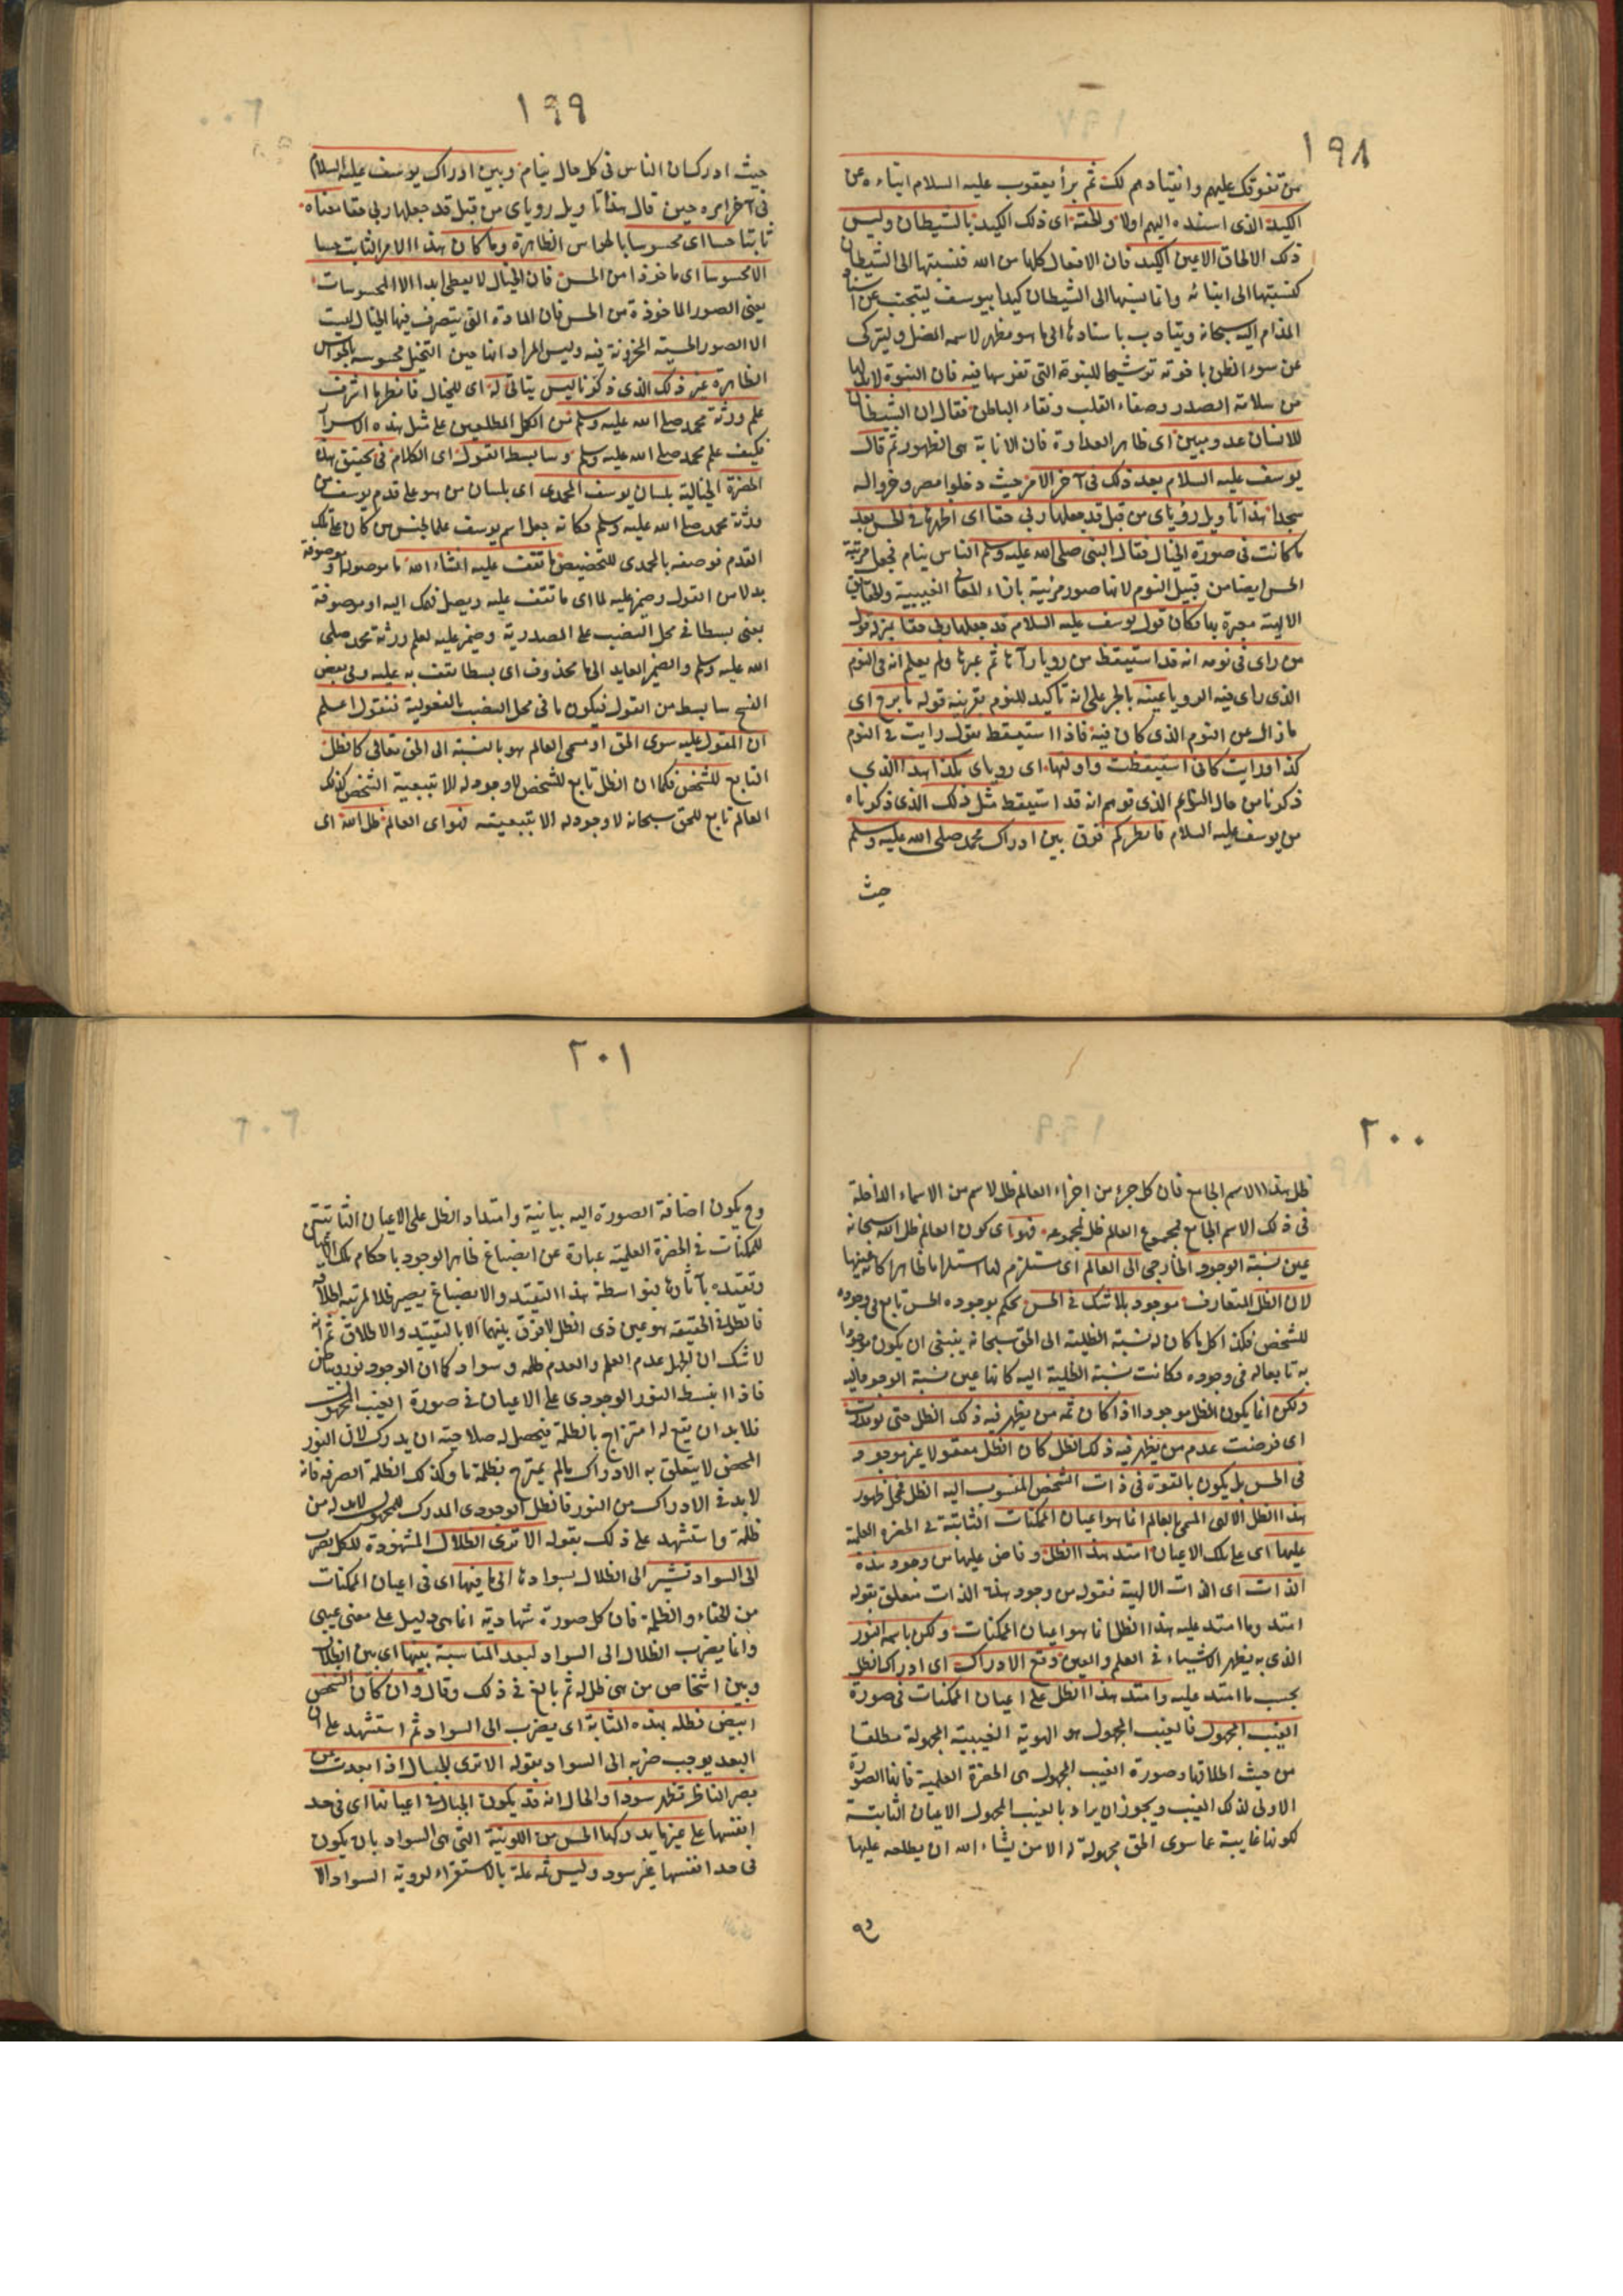 ١٩٨
من تفوقك عليهم وانقيادهم لك ثم برأ يعقوب عليه السلام ابناءه عن
الكيد الذى اسنده اليهم اولا والحقه اى ذلك الكيد بالشيطان وليس
ذلك الالحاق الا عين الكيد فان الافعال كلها من الله فنسبتها الى الشيطان
كنسبتها الى ابنائه وانما نسبها الى الشيطان كيدا بيوسف ليتجنب عن اسناد
المذام اليه سبحانه ويتادب باسنادها الى ما هو مظهر لاسمه المضل وليتزكى
عن سوء الظن باخوته ترشيحا للنبوة التى تفرسها فيه فان النبوة لابد لها
من سلامة الصدر وصفاء القلب ونقاء الباطن فقال ان الشيطان
للانسان عدو مبين اى ظاهر العداوة فان الابانة هى الظهور ثم قال
يوسف عليه السلام بعد ذلك فى آخر الامر حيث دخلوا مصر وخروا له
سجدا هذا تاويل رؤياى من قبل قد جعلها ربى حقا اى اظهرها فى الحس بعد
ما كانت فى صورة الخيال فقال النبى صلى الله عليه وسلم الناس نيام فجعل مرتبة
الحس ايضا من قبيل النوم لانها صور مرئية بازاء المعانى الغيبية والحقايق
الالهية معبرة بها فكان قول يوسف عليه السلام قد جعلها ربى حقا بمنزلة قول
من راى فى نومه انه قد استيقظ من رويا رآها ثم عبرها ولم يعلم انه فى النوم
الذى راى فيه الرويا عينه بالجر على انه تاكيد للنوم بقرينة قوله ما برح اى
ما زال عن النوم الذى كان فيه فاذا استيقظ يقول رايت فى النوم
كذا ورايت كانى استيقظت واولتها اى روياى بكذا هذا الذى
ذكرنا من حال النائم الذى توهم انه قد استيقظ مثل ذلك الذى ذكرناه
من يوسف عليه السلام فانظر كم فرق بين ادراك محمد صلى الله عليه وسلم
حيث
١٩٩
حيث ادرك ان الناس فى كل حال نيام وبين ادراك يوسف عليه السلام
فى آخر امره حين قال هذا تاويل روياى من قبل قد جعلها ربى حقا معناه
ثابتا حسا اى محسوسا بالحواس الظاهرة وما كان هذا الامر الثابت حسا
الا محسوسا اى ماخوذا من الحس فان الخيال لا يعطى ابدا الا المحسوسات
يعنى الصور الماخوذة من الحس فان المادة التى يتصرف فيها الخيال ليست
الا الصور الحسية المخزونة فيه وليس المراد انها حين التخيل محسوسة بالحواس
الظاهرة غير ذلك الذى ذكرنا ليس يتاتى له اى للخيال فانظر ما اشرف
علم ورثة محمد صلى الله عليه وسلم من الكمل المطلعين على مثل هذه الاسرار
فكيف علم محمد صلى الله عليه وسلم وسابسط القول اى الكلام فى تحقيق هذه
الحضرة الخيالية بلسان يوسف المحمدى اى بلسان من هو على قدم يوسف من
ورثة محمد صلى الله عليه وسلم فكانه جعل اسم يوسف علما لجنس من كان على تلك
القدم فوصفه بالمحمدى للتخصيص ما تقف عليه ان شاء الله ما موصولة او موصوفة
بدلا من القول وضمير عليه لما اى ما تقف عليه ويصل فهمك اليه او موصوفة
بمعنى بسطا فى محل النصب على المصدرية وضمير عليه لعلم ورثة محمد صلى
الله عليه وسلم والضمير العايد الى ما محذوف اى بسطا تقف به عليه وفى بعض
النسخ سابسط من القول فيكون ما فى محل النصب بالمفعولية فنقول اعلم
ان المقول عليه سوى الحق او مسمى العالم هو بالنسبة الى الحق تعالى كالظل
التابع للشخص فكما ان الظل تابع للشخص لا وجود له الا بتبعية الشخص كذلك
العالم تابع للحق سبحانه لا وجود له الا بتبعيته فهو اى العالم ظل الله اى
٢٠٠
ظل هذا الاسم الجامع فان كل جزء من اجزاء العالم ظل لاسم من الاسماء الداخلة
فى ذلك الاسم الجامع فمجموع العالم ظل لمجموعه فهو اى كون العالم ظل الله سبحانه
عين نسبة الوجود الخارجى الى العالم اى مستلزم لها استلزاما ظاهرا كانه عينها
لان الظل المتعارف موجود بلا شك فى الحس بحكم بوجوده الحس تابع فى وجوده
للشخص فكذا كل ما كان له نسبة الظلية الى الحق سبحانه ينبغى ان يكون موجودا
به تابعا له فى وجوده فكانت نسبة الظلية اليه كانها عين نسبة الوجود اليه
ولكن انما يكون الظل موجودا اذا كان ثمه من يظهر فيه ذلك الظل حتى لو قدرت
اى فرضت عدم من يظهر فيه ذلك الظل كان الظل معقولا غير موجود
فى الحس بل يكون بالقوة فى ذات الشخص المنسوب اليه الظل فمحل ظهور
هذا الظل الالهى المسمى بالعالم انما هو اعيان الممكنات الثابتة فى الحضرة العلمية
عليها اى على تلك الاعيان امتد هذا الظل وفاض عليها من وجود هذه
الذات اى الذات الالهية فقوله من وجود هذه الذات متعلق بقوله
امتد وما امتد عليه هذا الظل انما هو اعيان الممكنات ولكن باسمه النور
الذى به يظهر الاشياء فى العلم والعين وقع الادراك اى ادراك الظل
بحسب ما امتد عليه وامتد هذا الظل على اعيان الممكنات فى صورة
الغيب المجهول فالغيب المجهول هو الهوية الغيبية المجهولة مطلقا
من حيث اطلاقها وصورة الغيب المجهول هى الحضرة العلمية فانها الصورة
الاولى لذلك الغيب ويجوز ان يراد بالغيب المجهول الاعيان الثابتة
لكونها غايبة عما سوى الحق مجهولة له الا من يشاء الله ان يطلعه عليها
وح
٢٠١
وح يكون اضافة الصورة اليه بيانية وامتداد الظل على الاعيان الثابتة التى
للممكنات فى الحضرة العلمية عبارة عن انصباغ ظاهر الوجود باحكام تلك الاعيان
وتقيده بآثارها فبواسطة هذا التقيد والانصباغ يصير ظلا لمرتبة اطلاقه
فالظل فى الحقيقه هو عين ذى الظل لا فرق بينهما الا بالتقييد والاطلاق ثم انه
لا شك ان الجهل عدم العلم والعدم ظلمه وسواد كما ان الوجود نور وبياض
فاذا انبسط النور الوجودى على الاعيان فى صورة الغيب المجهول
فلابد ان يقع له امتزاج بالظلمة فيحصل له صلاحية ان يدرك لان النور
المحض لا يتعلق به الادراك ما لم يمتزج بظلمة ما وكذلك الظلمة الصرفه فانه
لابد فى الادراك من النور فالظل الوجودى المدرك للمجهول لابد له من
ظلمة واستشهد على ذلك بقوله الا ترى الظلال المشهودة للكل تضرب
الى السواد تشير الى الظلال بسوادها الى ما فيها اى فى اعيان الممكنات
من الخفاء والظلمة فان كل صورة شهادية انما هى دليل على معنى غيبى
وانما يضرب الظلال الى السواد لبعد المناسبة بينها اى بين الظلال
وبين اشخاص من هى ظل له ثم بالغ فى ذلك وقال وان كان الشخص
ابيض فظله بهذه المثابة اى يضرب الى السواد ثم استشهد على ان
البعد يوجب ضربه الى السواد بقوله الا ترى الجبال اذا بعدت عن
بصر الناظر تظهر سوداء والحال انه قد يكون الجبال فى اعيانها اى فى حد
انفسها على غير ما يدركها الحس من اللونية التى هى السواد بان يكون
فى حد انفسها غير سود وليس ثمه علة بالاستقراء لروية السواد الا